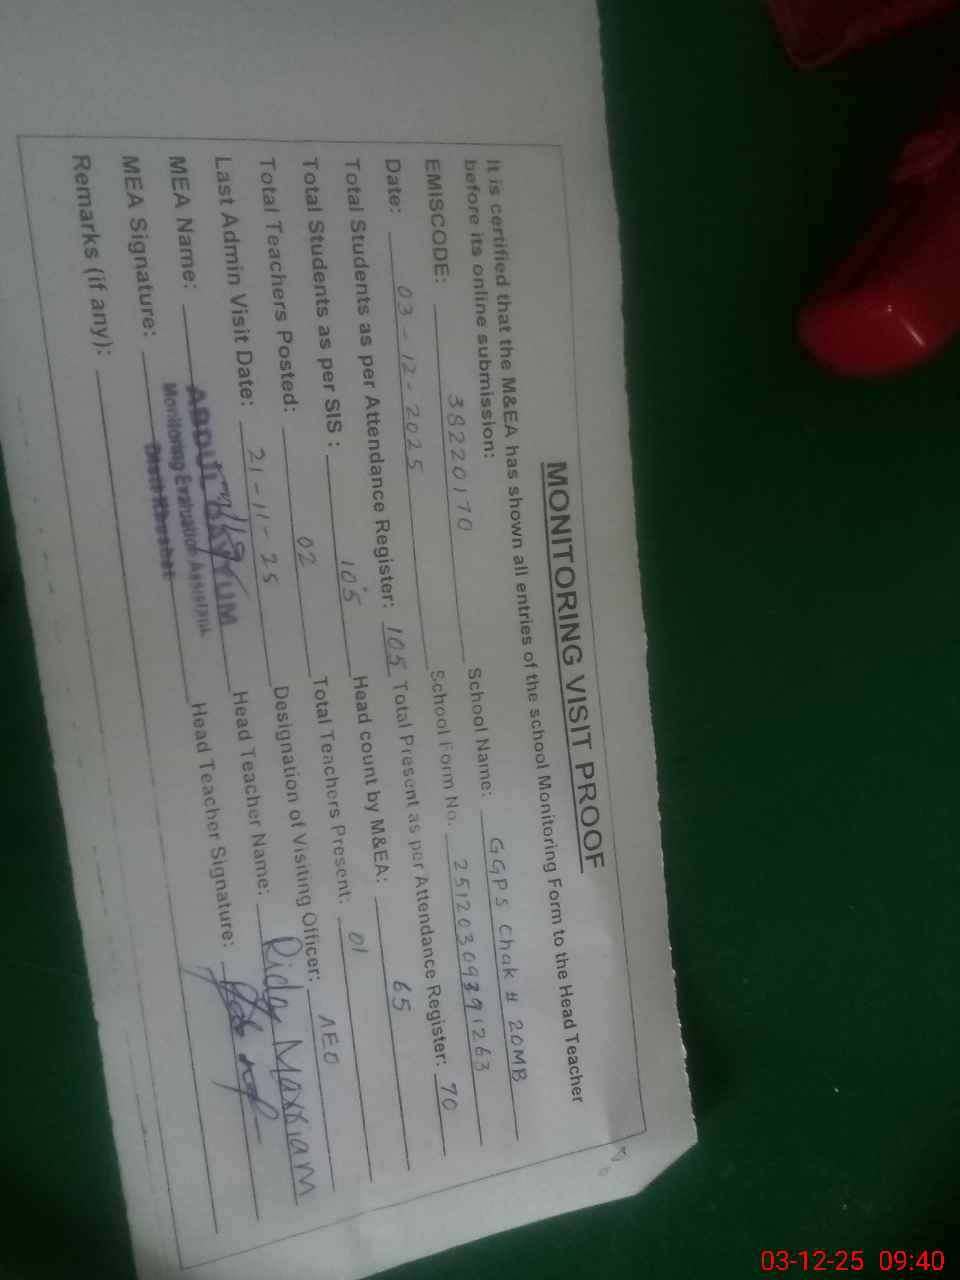 MONITORING VISIT PROOF
It is certified that the M&EA has shown all entries of the school Monitoring Form to the Head Teacher
before its online submission:
EMISCODE: 38220170 School Name: GGPS Chak # 20MB
Date: 03-12-2025 School Form No. 2512030939 1263
Total Students as per Attendance Register: 105 Total Present as per Attendance Register: 70
Total Students as per SIS : 105 Head count by M&EA: 65
Total Teachers Posted: 02 Total Teachers Present: 01
Last Admin Visit Date: 21-11-25 Designation of Visiting Officer: AEO
MEA Name: ABDUL Head Teacher Name: Rida Maxxiam
Monitoring Evaluation Assistant
MEA Signature: Head Teacher Signature:
Remarks (if any):
03-12-25 09:40